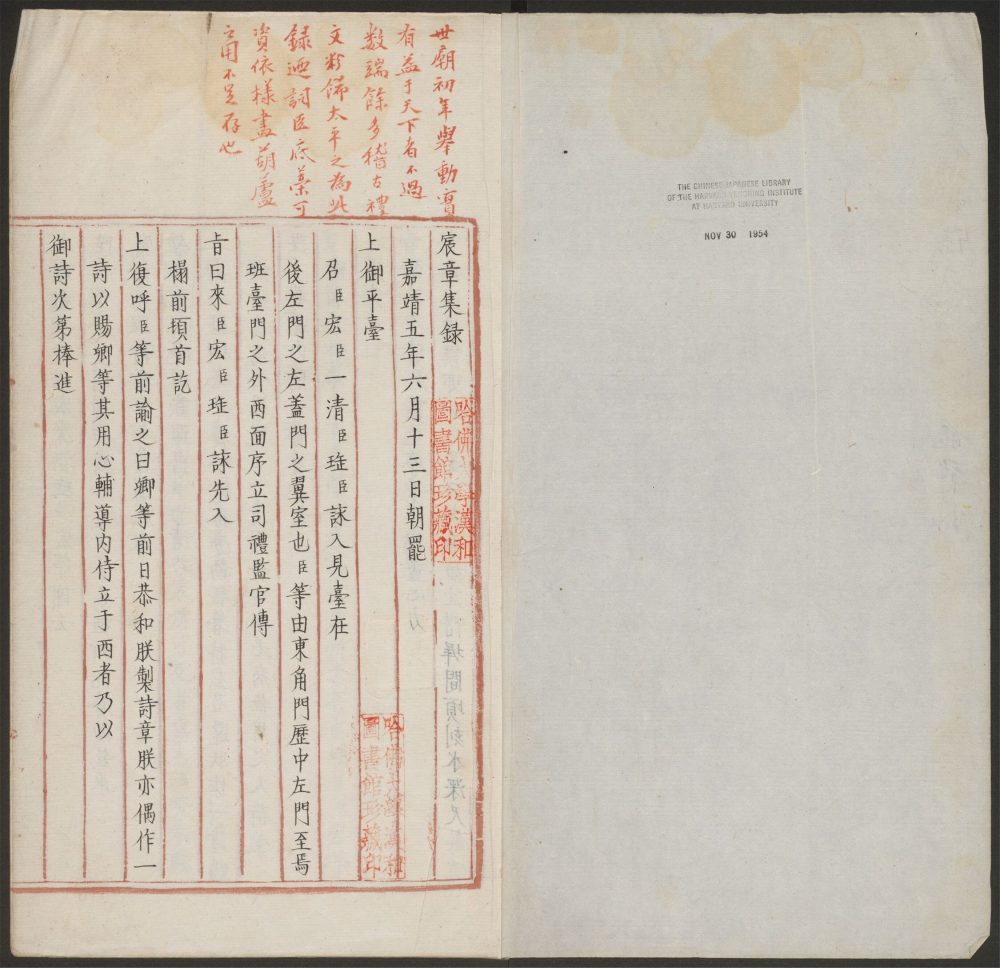 THE CHINESE-JAPANESE LIBRARY
OF THE HARVARD-YENCHING INSTITUTE
AT HARVARD UNIVERSITY
NOV 30 1954
世廟初年舉動實
有益于天下者不過
数端餘多稽古禮
文粉飾太平之為此
録迺詞臣底藁可
資依樣畫葫蘆
之用不足存也
宸章集録
嘉靖五年六月十三日朝罷
上御平臺
召臣宏臣一清臣珤臣誺入見臺在
後左門之左蓋門之翼室也臣等由東角門歷中左門至焉
班臺門之外西面序立司禮監官傳
旨曰來臣宏臣珤臣誺先入
榻前頓首訖
上復呼臣等前諭之曰卿等前日恭和朕製詩章朕亦偶作一
詩以賜卿等其用心輔導内侍立于西者乃以
御詩次第捧進
哈佛大學漢和
圖書館珍藏印
哈佛大學漢和
圖書館珍藏印